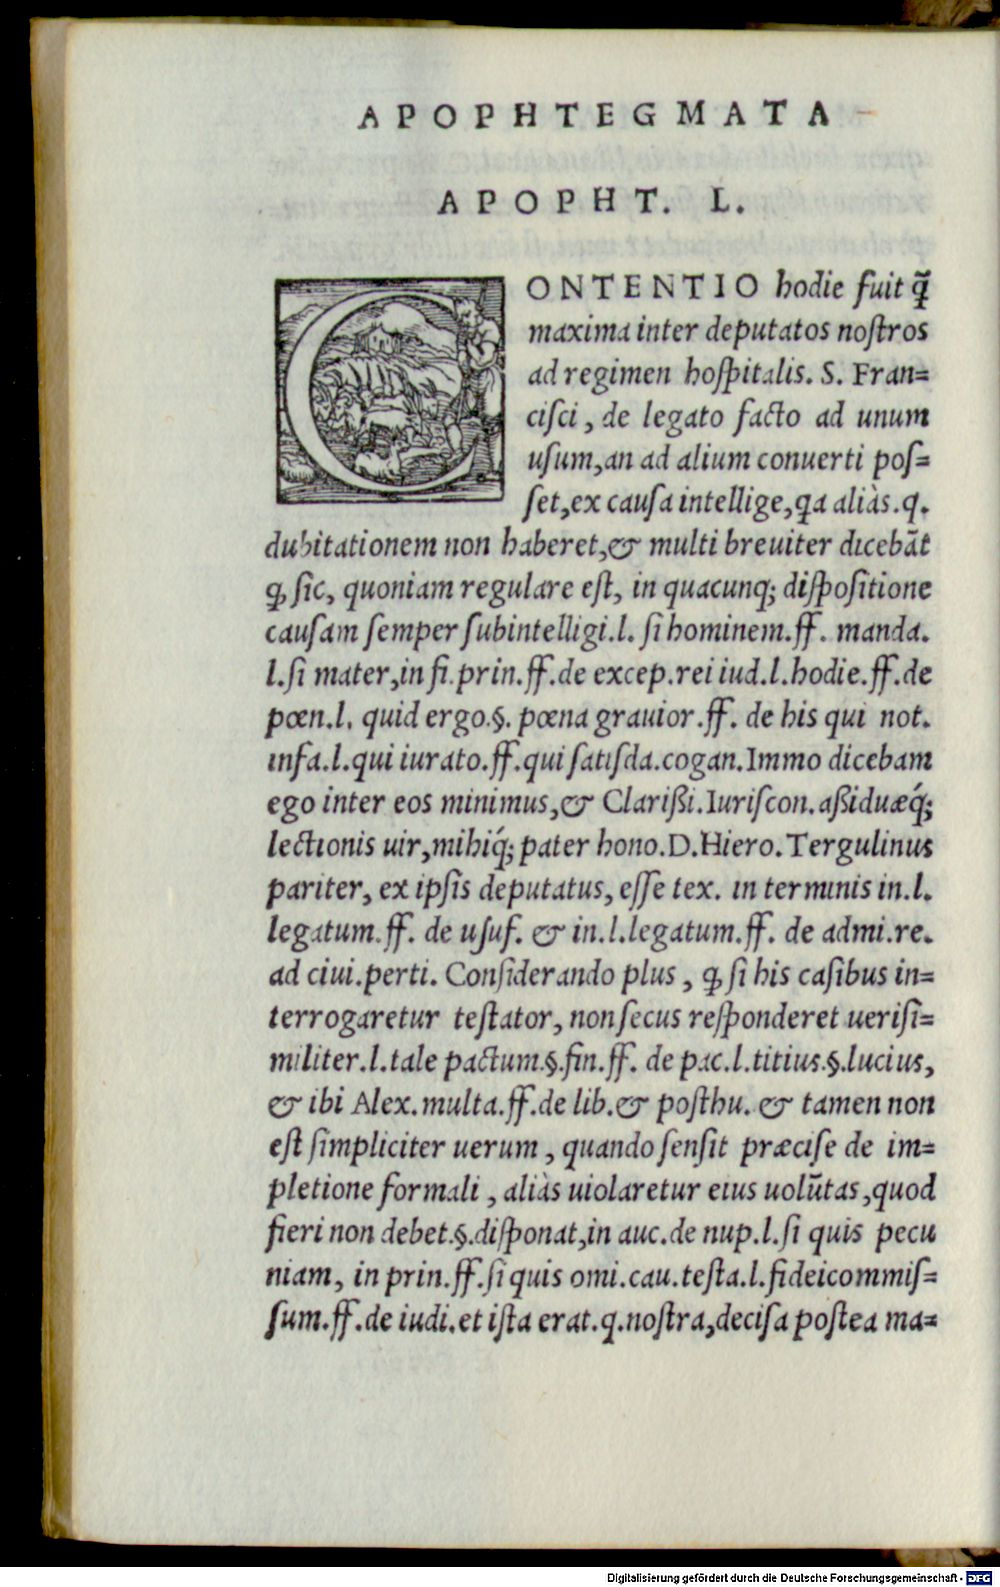 APOPHTEGMATA
APOPHT. L.
CONTENTIO hodie fuit q̃
maxima inter deputatos noſtros
ad regimen hoſpitalis. S. Fran=
ciſci, de legato facto ad unum
uſum, an ad alium conuerti poſ=
ſet, ex cauſa intellige, qa aliàs. q.
dubitationem non haberet, & multi breuiter dicebãt
ꝙ ſic, quoniam regulare eſt, in quacunq; diſpoſitione
cauſam ſemper ſubintelligi. l. ſi hominem. ff. manda.
l. ſi mater, in fi. prin. ff. de excep. rei iud. l. hodie. ff. de
pœn. l. quid ergo. §. pœna grauior. ff. de his qui not.
infa. l. qui iurato. ff. qui ſatiſda. cogan. Immo dicebam
ego inter eos minimus, & Clarißi. Iuriſcon. aßiduæq́;
lectionis uir, mihiq́; pater hono. D. Hiero. Tergulinus
pariter, ex ipſis deputatus, eſſe tex. in terminis in. l.
legatum. ff. de uſuf. & in. l. legatum. ff. de admi. re.
ad ciui. perti. Conſiderando plus, ꝙ ſi his caſibus in=
terrogaretur teſtator, non ſecus reſponderet ueriſi=
militer. l. tale pactum. §. fin. ff. de pac. l. titius. §. lucius,
& ibi Alex. multa. ff. de lib. & poſthu. & tamen non
eſt ſimpliciter uerum, quando ſenſit præciſe de im=
pletione formali, aliàs uiolaretur eius uolũtas, quod
fieri non debet. §. diſponat, in auc. de nup. l. ſi quis pecu
niam, in prin. ff. ſi quis omi. cau. teſta. l. fideicommiſ=
ſum. ff. de iudi. et iſta erat. q. noſtra, deciſa poſtea ma=
Digitalisierung gefördert durch die Deutsche Forschungsgemeinschaft - DFG